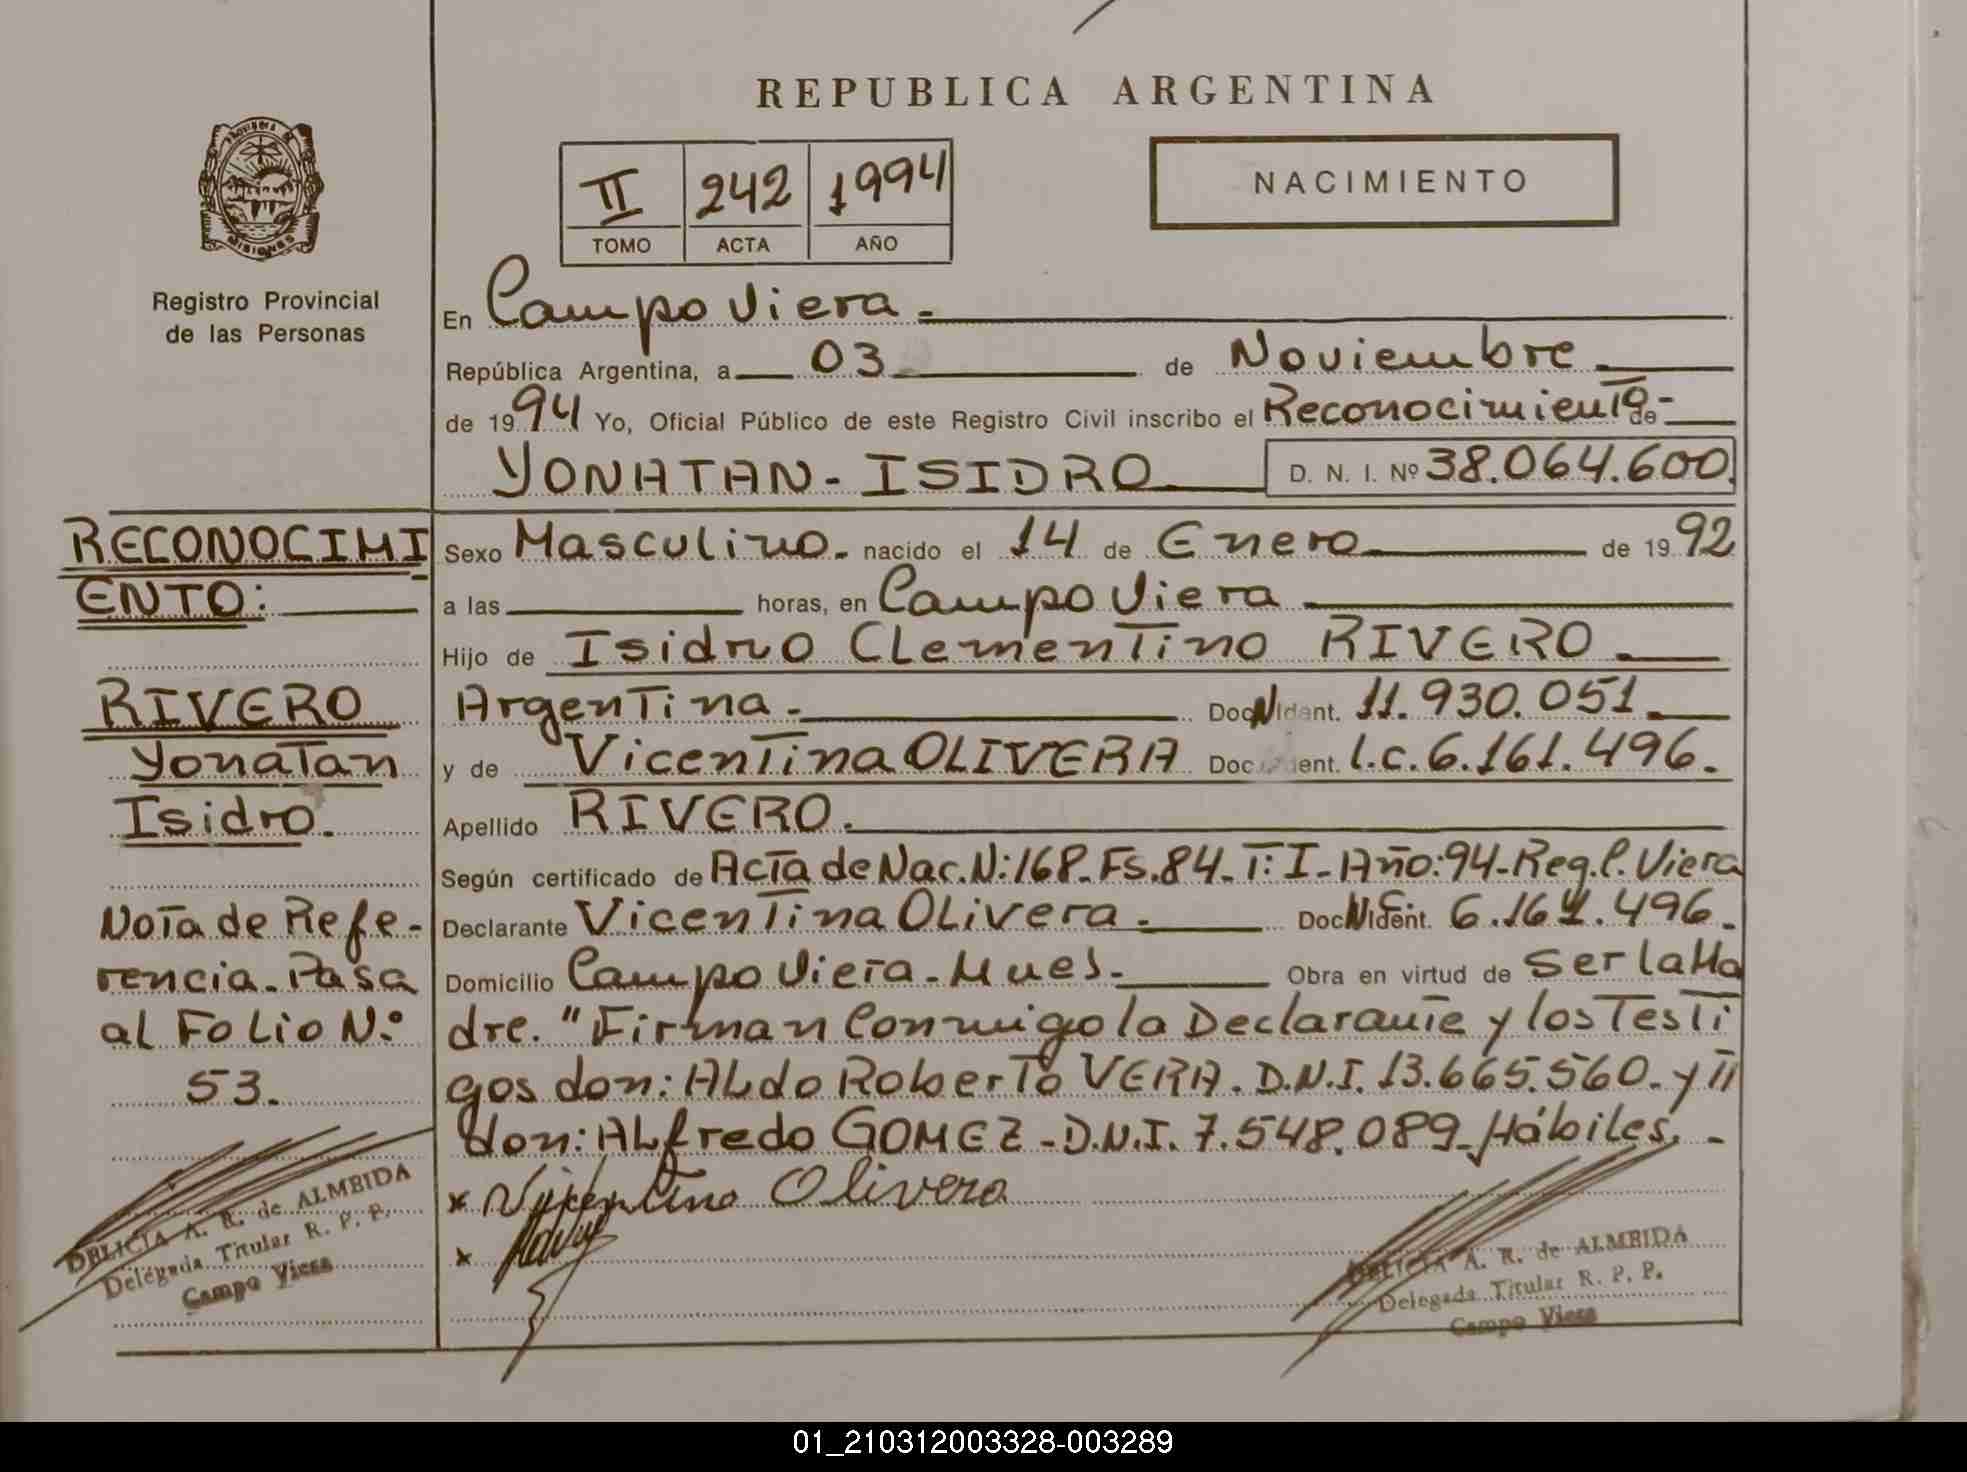 REPUBLICA ARGENTINA
II 242 1994
TOMO ACTA AÑO
NACIMIENTO
Registro Provincial
de las Personas
En Campo Viera.
República Argentina, a 03 de Noviembre
de 1994 Yo, Oficial Público de este Registro Civil inscribo el Reconocimiento de
YONATAN - ISIDRO D. N. I. Nº 38.064.600
Sexo Masculino. nacido el 14 de Enero de 1992
a las horas, en Campo Viera
Hijo de Isidro Clementino RIVERO.
Argentina. Doc. N Ident. 11.930.051.
y de Vicentina OLIVERA Doc. Ident. L.C. 6.161.496.
Apellido RIVERO.
Según certificado de Acta de Nac. N: 168. Fs. 84. T: I - Año: 94 - Reg. C. Viera
Declarante Vicentina Olivera. Doc. Ident. 6.161.496.
Domicilio Campo Viera - Mnes. Obra en virtud de ser la Ma
dre. "Firman conmigo la Declarante y los Testi
gos don: Aldo Roberto VERA. D.N.I. 13.665.560. y
don: Alfredo GOMEZ - D.N.I. 7.548.089 - Hábiles. -
x Vicentina Olivera
x
DELICIA A. R. de ALMEIDA
Delegada Titular R. P. P.
Campo Viera
RECONOCIMI
ENTO:
RIVERO
Yonatan
Isidro.
Nota de Refe-
rencia. Pasa
al Folio N.º
53.
DELICIA A. R. de ALMEIDA
Delegada Titular R. P. P.
Campo Viera
01_210312003328-003289